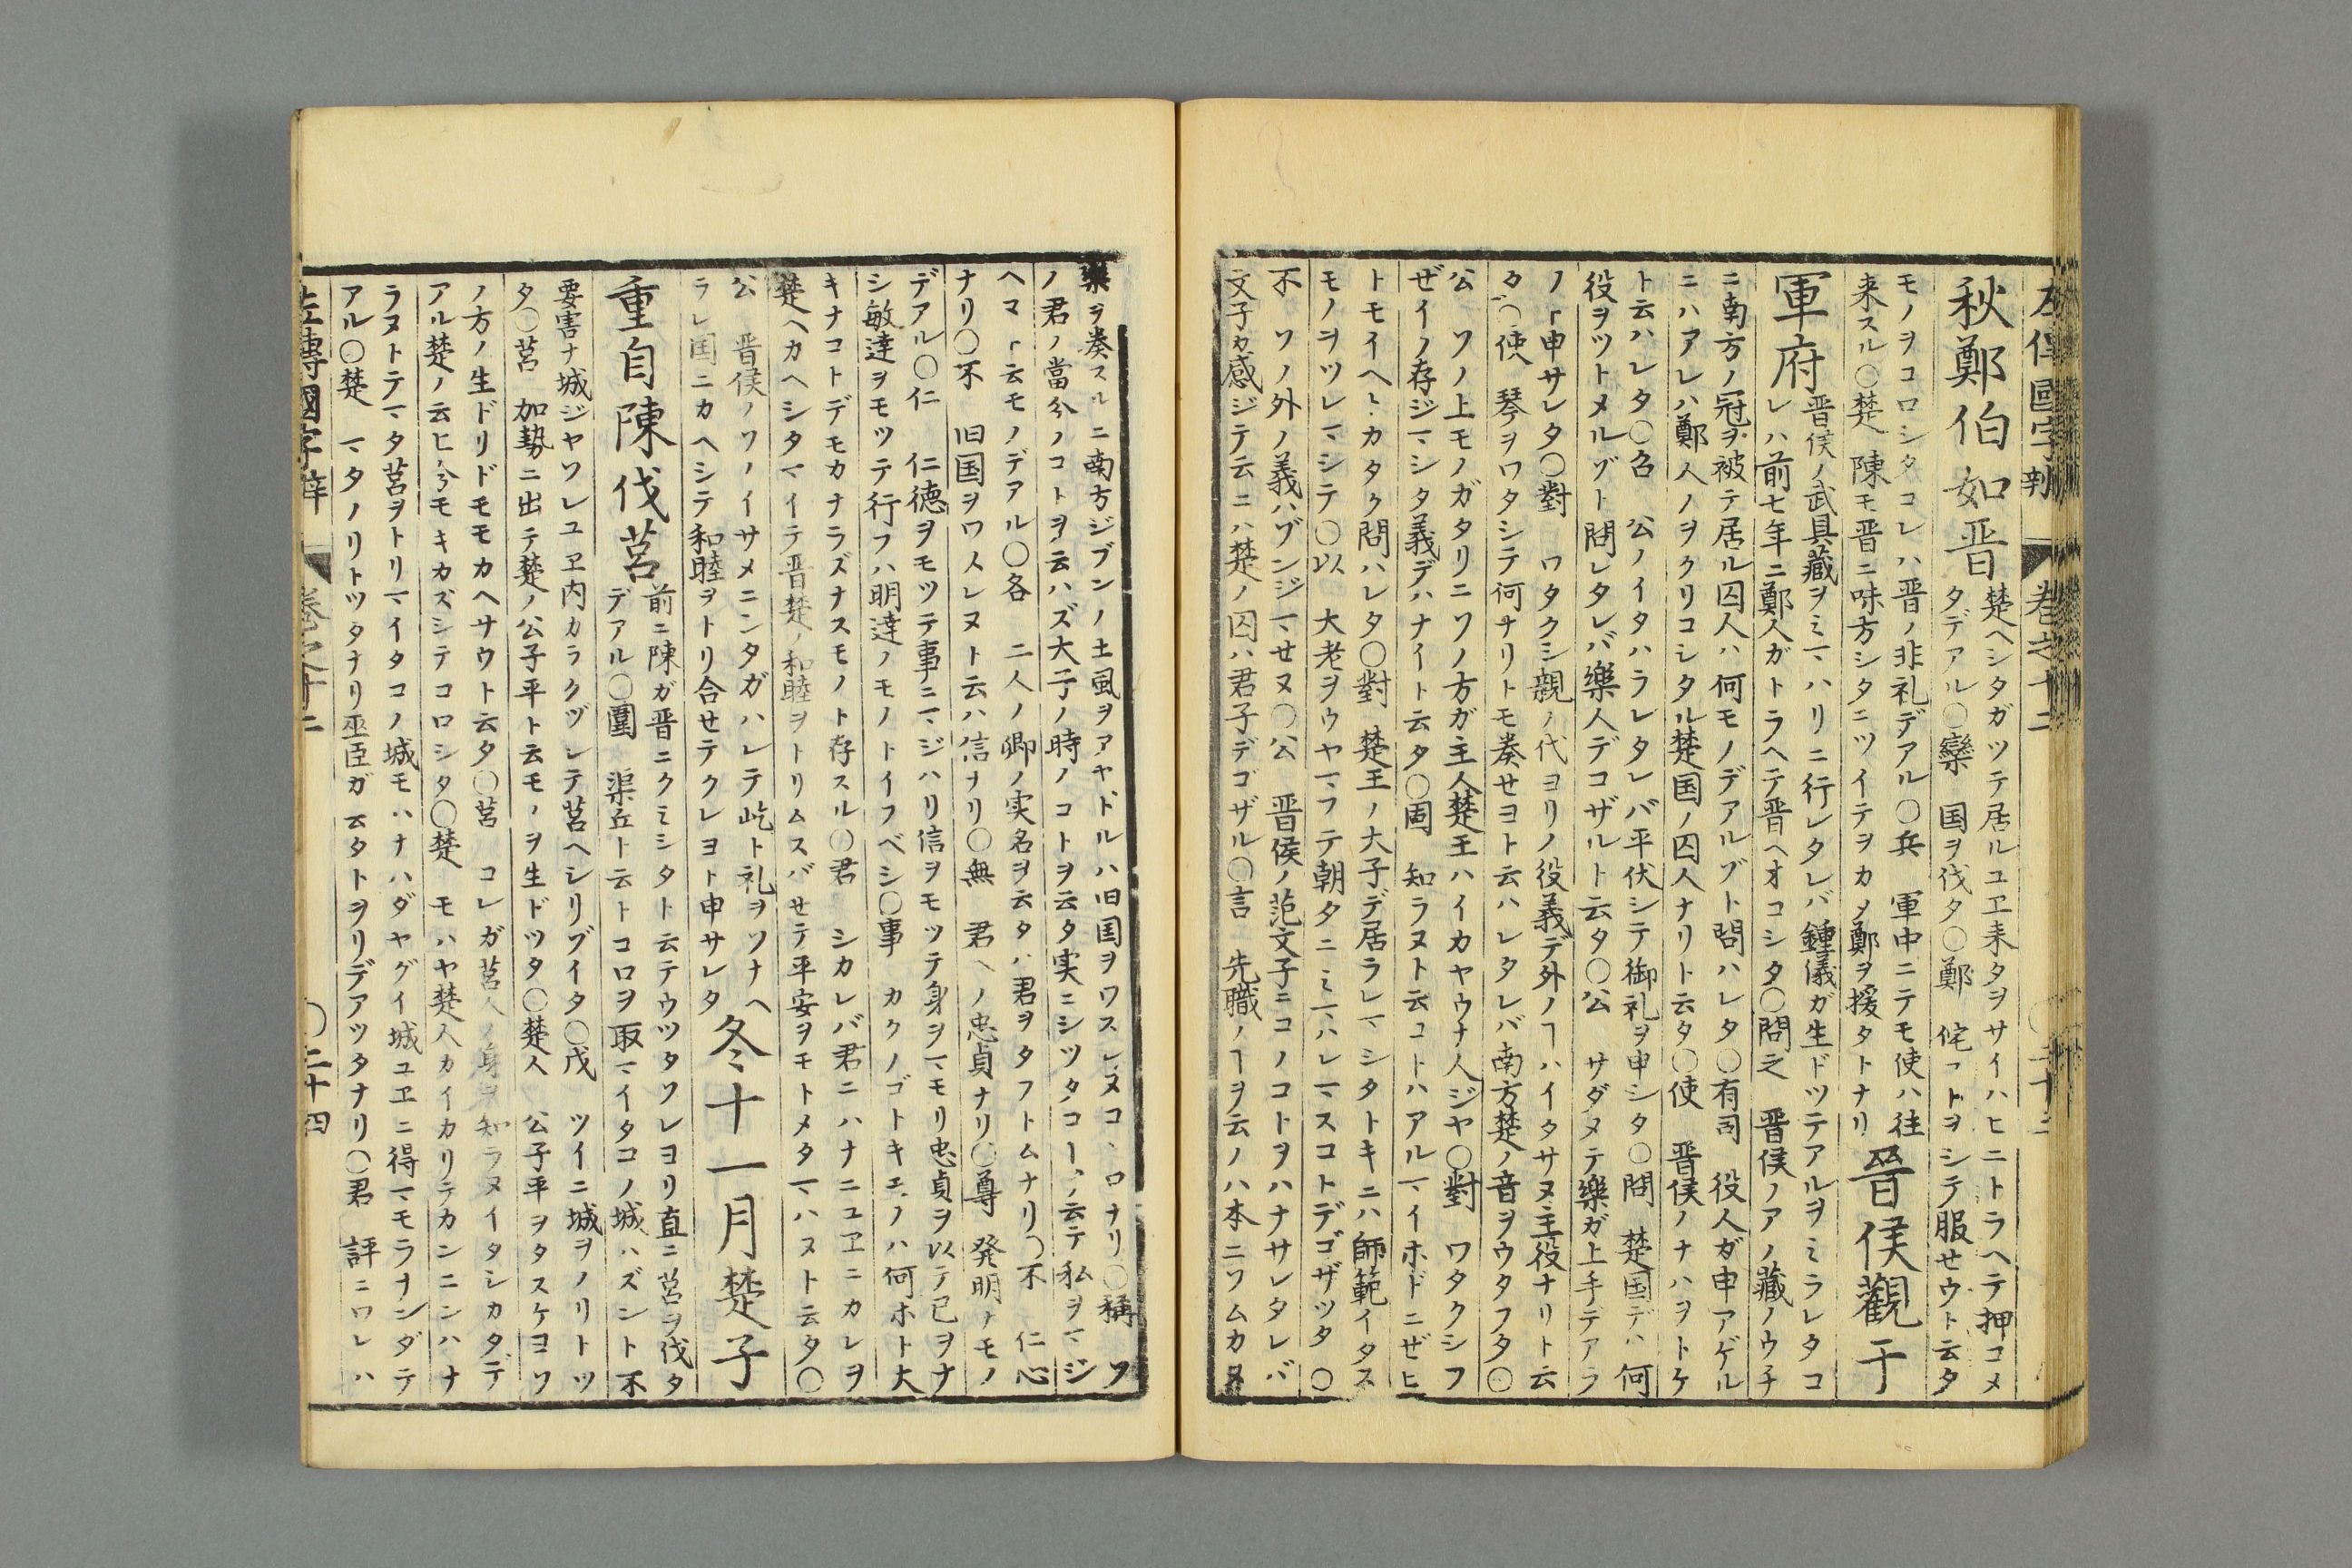 左傳國字辯 卷之十二
秋鄭伯如晋
楚ヘシタガツテ居ルユヱ来タヲサイハヒニトラヘテ押コメ
タデアル○欒 国ヲ伐タ○鄭 侘ヿトヲシテ服セウト云タ
モノヲコロシタコレハ晋ノ非礼デアル○兵 軍中ニテモ使ハ往
来スル○楚 陳モ晋ニ味方シタニツイテヲカメ鄭ヲ援タトナリ
晉侯觀于
軍府
晋侯ノ武具藏ヲミマハリニ行レタレバ鍾儀ガ生ドツテアルヲミラレタコ
レハ前七年ニ鄭人ガトラヘテ晋ヘオコシタ○問之 晋侯ノアノ藏ノウチ
ニ南方ノ冠ヲ被テ居ル囚人ハ何モノデアルゾト問ハレタ○有司 役人ガ申アゲル
ニハアレハ鄭人ノヲクリコシタル楚国ノ囚人ナリト云タ○使 晋侯ノナハヲトケ
ト云ハレタ○召 公ノイタハラレタレバ平伏シテ御礼ヲ申シタ○問 楚国デハ何
役ヲツトメルゾト問レタレバ樂人デコザルト云タ○公 サダメテ樂ガ上手デアラ
ノㇳ申サレタ○對 ワタクシ親ノ代ヨリノ役義デ外ノヿハイタサヌ主役ナリト云
タ○使 琴ヲワタシテ何ナリトモ奏セヨト云ハレタレバ南方楚ノ音ヲウタフタ○
公 ソノ上モノガタリニソノ方ガ主人楚王ハイカヤウナ人ジヤ○對 ワタクシフ
ゼイノ存ジマシタ義デハナイト云タ○固 知ラヌト云コトハアルマイホドニゼヒ
トモイヘトカタク問ハレタ○對 楚王ノ大子デ居ラレマシタトキニハ師範イタス
モノヲツレマシテ○以 大老ヲウヤマフテ朝タニミマハレマスコトデゴザツタ○
不 ソノ外ノ義ハゾンジマセヌ○公 晋侯ノ范文子ニコノコトヲハナサレタレバ
文子カ感ジテ云ニハ楚ノ囚ハ君子デゴザル○言 先職ノヿヲ云ノハ本ニソムカヌ
樂ヲ奏スルニ南方ジブンノ土風ヲアヤトルハ旧国ヲワスレヌコヽロナリ○稱 ソ
ノ君ノ當分ノコトヲ云ハズ大子ノ時ノコトヲ云タ実ニシツタコヿヲ云テ私ヲマジ
ヘマㇳ云モノデアル○各 二人ノ卿ノ実名ヲ云タハ君ヲタフトムナリ○不 仁心
ナリ○不 旧国ヲワスレヌト云ハ信ナリ○無 君ヘノ忠貞ナリ○尊 発明ナモノ
デアル○仁 仁德ヲモツテ事ニマジハリ信ヲモツテ身ヲマモリ忠貞ヲ以テ已ヲナ
シ敏達ヲモツテ行フハ明達ノモノトイフベシ○事 カクノゴトキモノハ何ホト大
キナコトデモカナラズナスモノト存スル○君 シカレバ君ニハナニユヱニカレヲ
楚ヘカヘシタマイテ晋楚ノ和睦ヲトリムスバセテ平安ヲモトメタマハヌト云タ○
公 晋侯ノソノイサメニシタガハレテ屹ト礼ヲソナヘ
ラレ国ニカヘシテ和睦ヲトリ合セテクレヨト申サレタ
冬十一月楚子
重自陳伐莒
前ニ陳ガ晋ニクミシタト云テウツタソレヨリ直ニ莒ヲ伐タ
デアル○圍 渠丘ト云トコロヲ取マイタコノ城ハズント不
要害ナ城ジヤソレユヱ内カラクヅレテ莒ヘシリゾイタ○戊 ツイニ城ヲノリトツ
タ○莒 加勢ニ出テ楚ノ公子平ト云モノヲ生ドツタ○楚人 公子平ヲタスケヨソ
ノ方ノ生ドリドモモカヘサウト云タ○莒 コレガ莒人ノ身ヲ知ラヌイタシカタデ
アル楚ノ云ヒ分モキカズシテコロシタ○楚 モハヤ楚人カイカリテカンニンハナ
ラヌトテマタ莒ヲトリマイタコノ城モハナハダヤグイ城ユヱニ得マモラナンダテ
アル○楚 マタノリトツタナリ巫臣ガ云タトヲリデアツタナリ○君 評ニワレハ
左傳國字辯 卷之十二 ○二十四